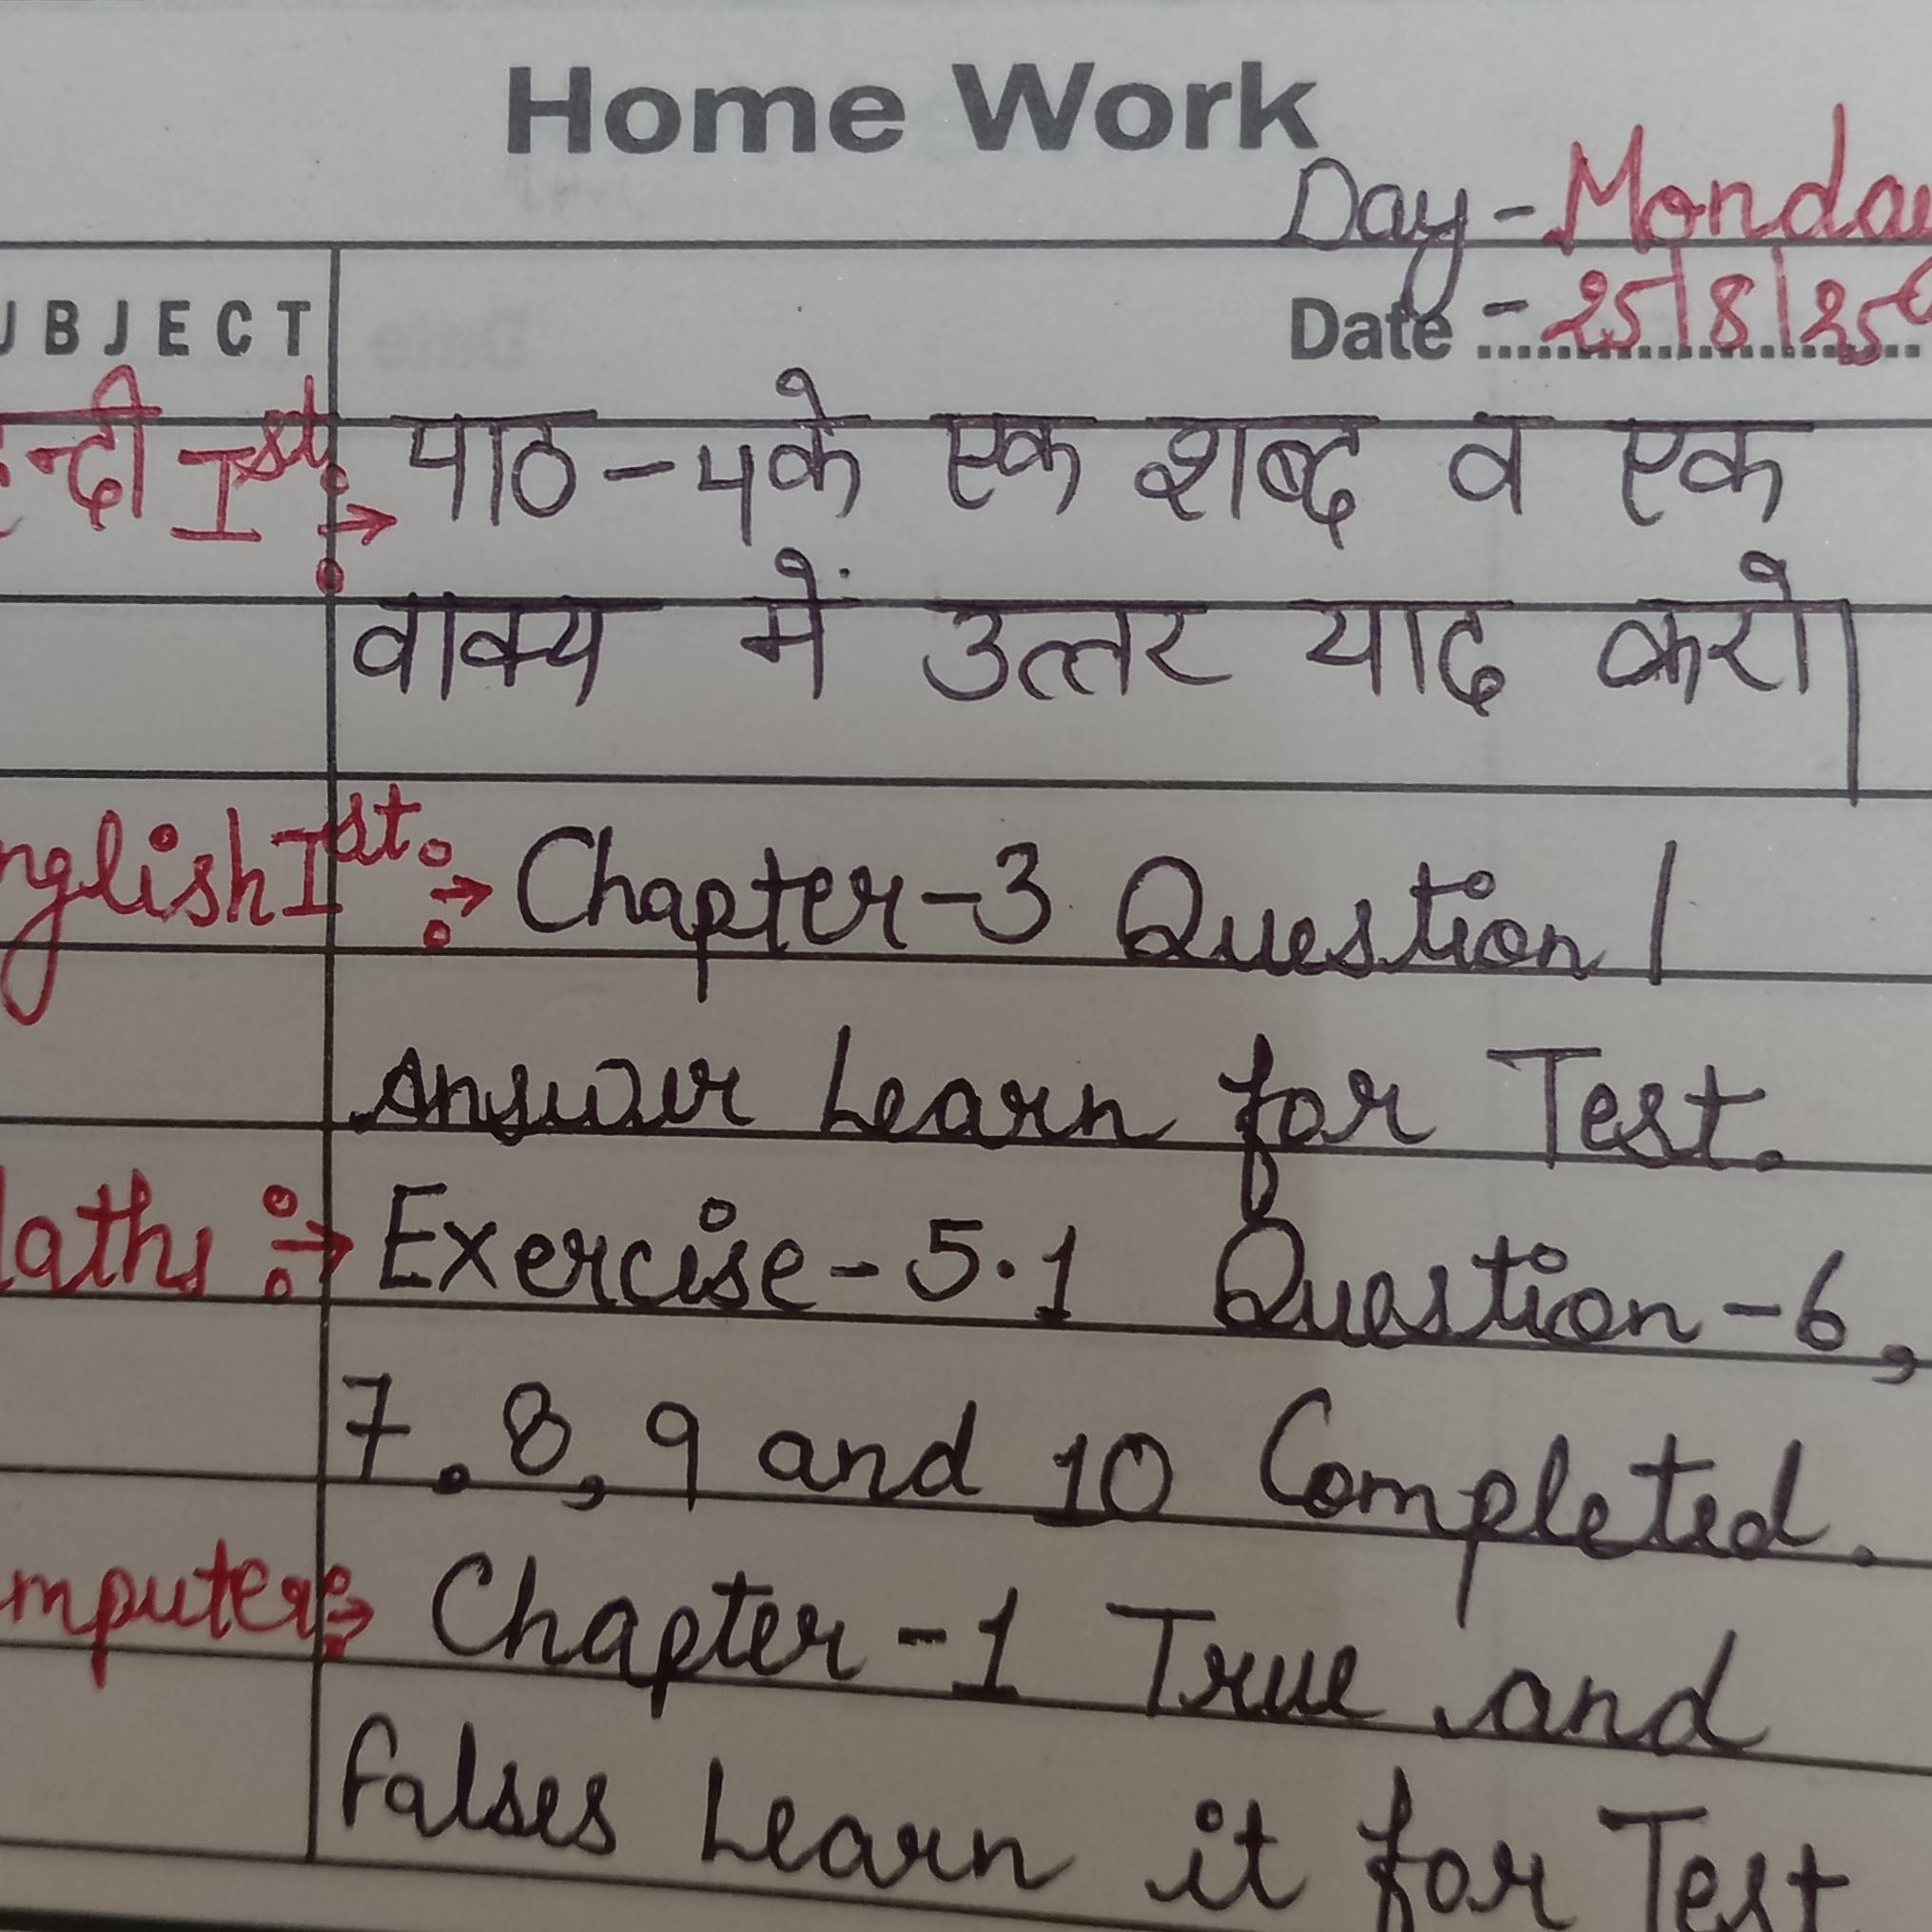 Home Work
Day - Monday
SUBJECT Date - 25/8/25
हिन्दी Ist :→ पाठ-4के एक शब्द व एक
वाक्य में उत्तर याद करो।
English Ist :→ Chapter-3 Question /
Answer Learn for Test.
Maths :→ Exercise-5.1 Question-6,
7, 8, 9 and 10 Completed.
Computer :→ Chapter-1 True and
falses Learn it for Test